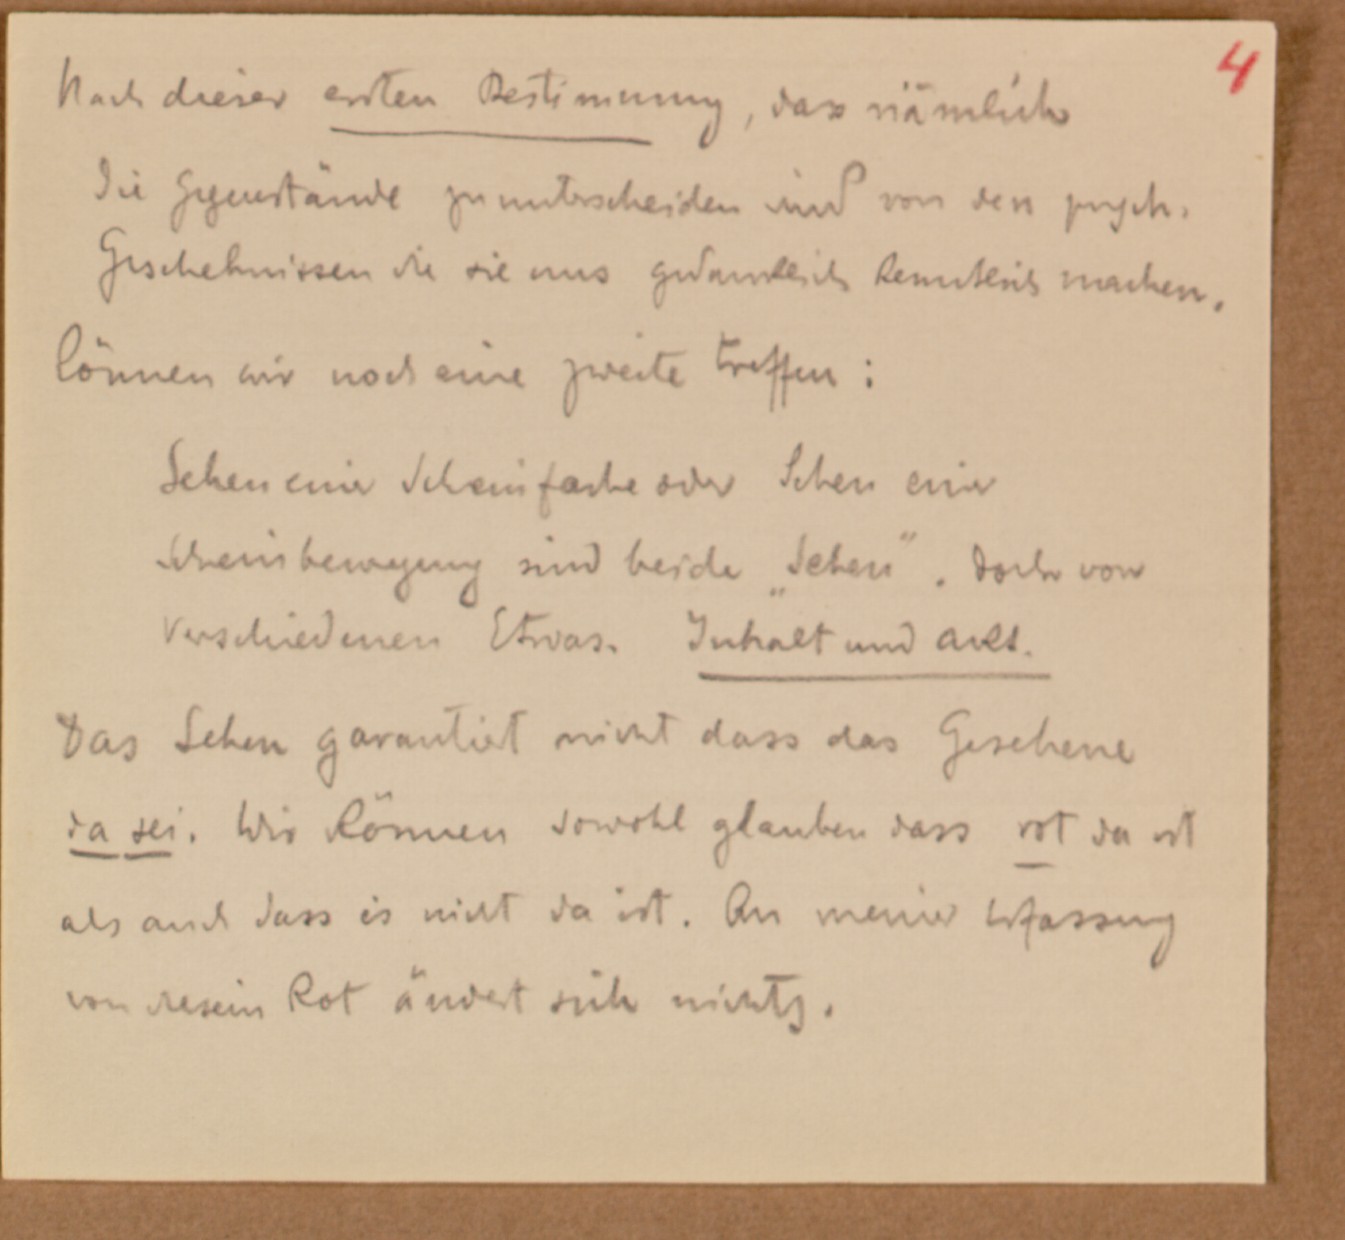 4
Nach dieser ersten Bestimmung, dass nämlich
die Gegenstände zu unterscheiden sind von den psych.
Geschehnissen die sie uns gedanklich kenntlich machen,
können wir noch eine zweite treffen:
Sehen einer Scheinfarbe oder Sehen einer
Scheinbewegung sind beide „Sehen". Doch von
Verschiedenen Etwas. Inhalt und Akt.
Das Sehen garantiert nicht dass das Gesehene
da sei. Wir können sowohl glauben dass rot da ist
als auch dass es nicht da ist. An meiner Erfassung
von diesem Rot ändert sich nichts.